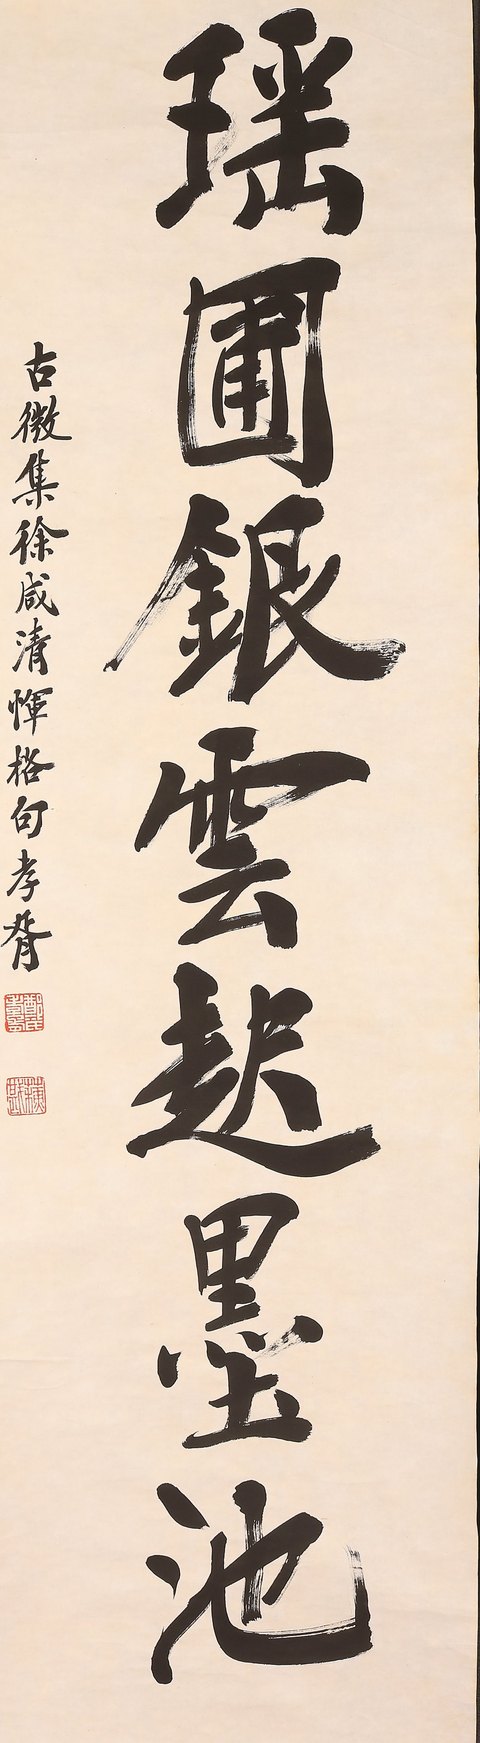 瑤圃銀雲起墨池
古微集徐咸清惲格句孝胥